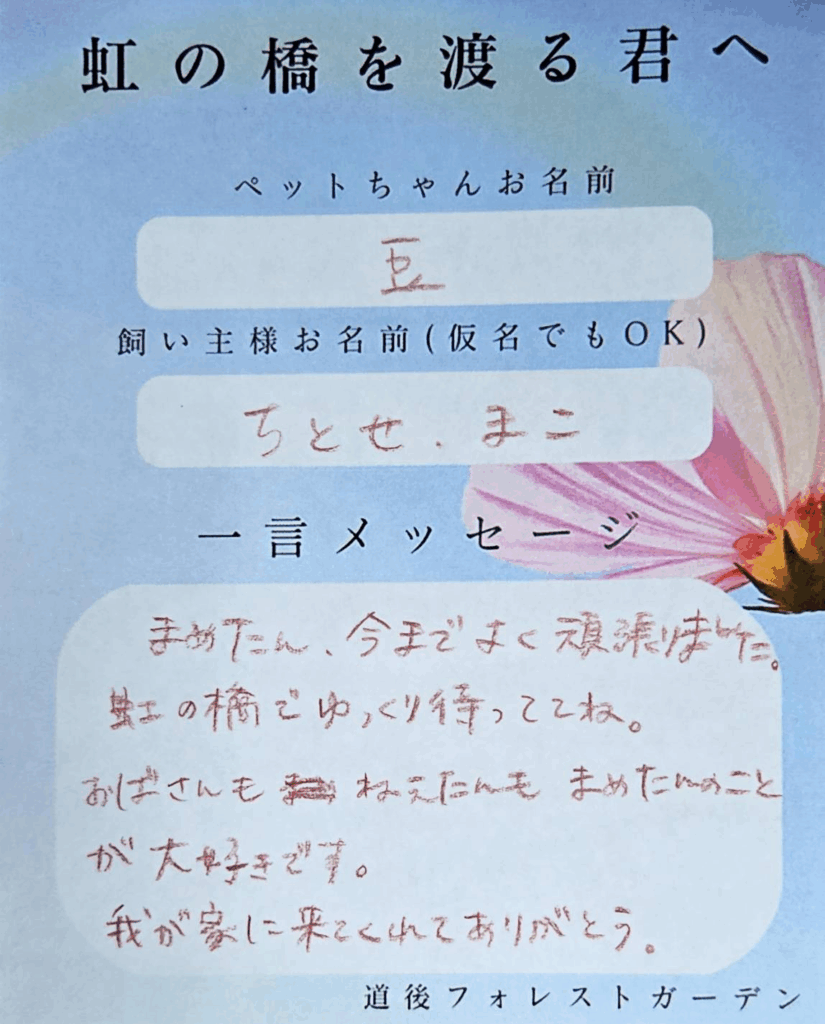 虹の橋を渡る君へ
ペットちゃんお名前
豆
飼い主様お名前(仮名でもOK)
ちとせ、まこ
一言メッセージ
まめたん、今までよく頑張りました。
虹の橋でゆっくり待っててね。
おばさんも ねえたんも まめたんのこと
が大好きです。
我が家に来てくれてありがとう。
道後フォレストガーデン